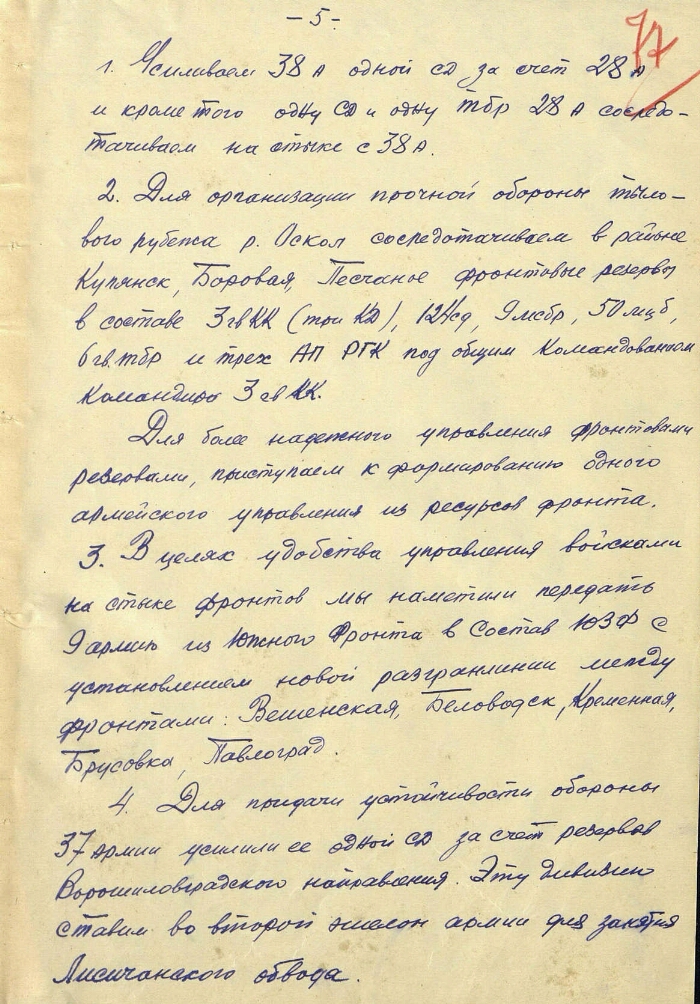 - 5 -
77
1. Усиливаем 38 А одной СД за счет 28 А
и кроме того одну СД и одну тбр 28 А сосредо-
тачиваем на стыке с 38 А.
2. Для организации прочной обороны тыло-
вого рубежа р. Оскол сосредотачиваем в районе
Купянск, Боровая, Песчаное фронтовые резервы
в составе 3 гв КК (три КД), 124сд, 9 мсбр, 50 мцб,
6 гв. тбр и трех АП РГК под общим Командованием
Командира 3 гв КК.
Для более надежного управления фронтовыми
резервами, приступаем к формированию одного
армейского управления из ресурсов фронта.
3. В целях удобства управления войсками
на стыке фронтов мы наметили передать
9 армию из Южного Фронта в Состав ЮЗФ с
установлением новой разгранлинии между
фронтами: Вешенская, Беловодск, Кременная,
Брусовка, Павлоград.
4. Для придачи устойчивости обороны
37 армии усилили ее одной СД за счет резервов
Ворошиловградского направления. Эту дивизию
ставим во второй эшелон армии для занятия
Лисичанского обвода.